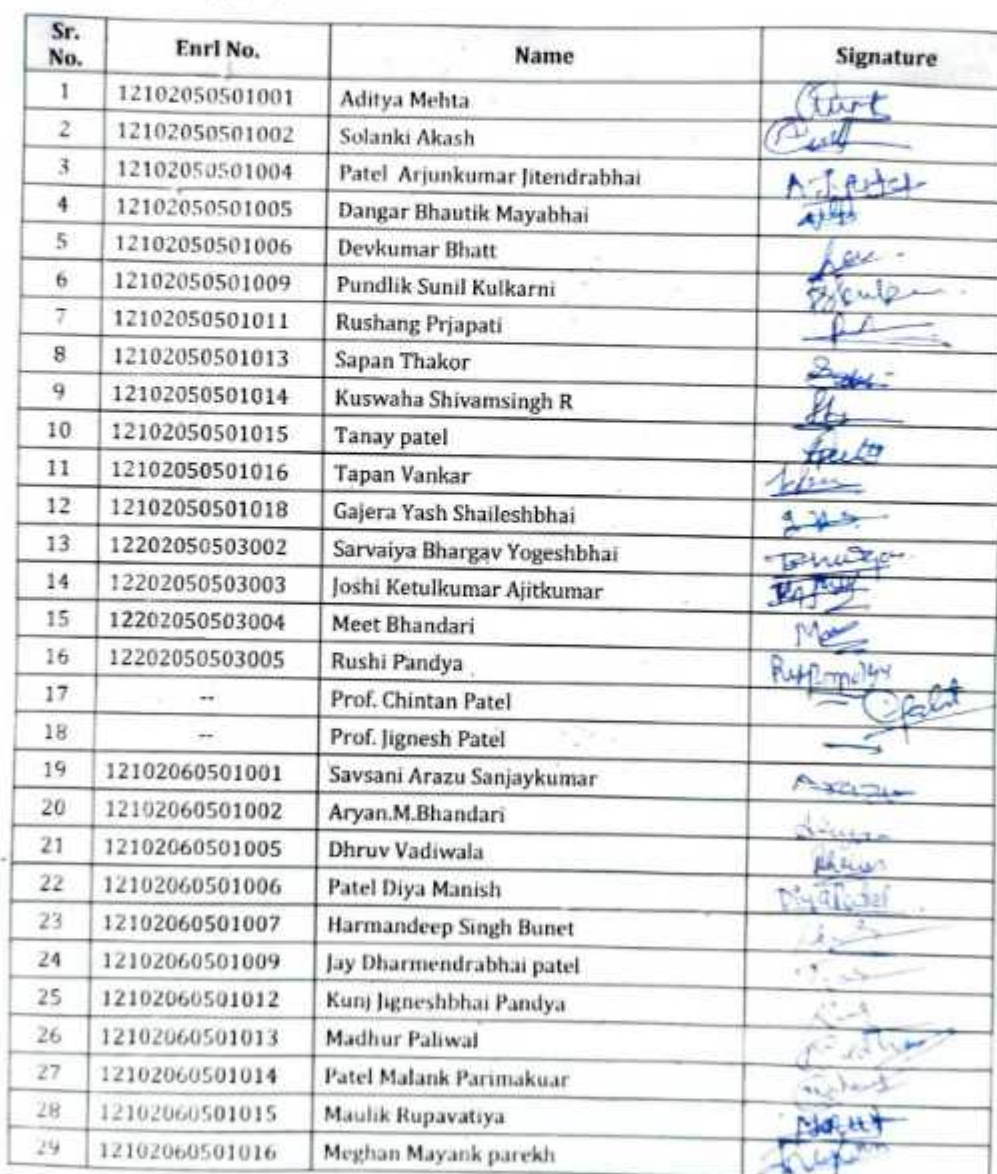 Sr. No. Enrl No. Name Signature
1 12102050501001 Aditya Mehta
2 12102050501002 Solanki Akash
3 12102050501004 Patel Arjunkumar Jitendrabhai A.J.Patel
4 12102050501005 Dangar Bhautik Mayabhai
5 12102050501006 Devkumar Bhatt
6 12102050501009 Pundlik Sunil Kulkarni
7 12102050501011 Rushang Prjapati
8 12102050501013 Sapan Thakor
9 12102050501014 Kuswaha Shivamsingh R
10 12102050501015 Tanay patel
11 12102050501016 Tapan Vankar
12 12102050501018 Gajera Yash Shaileshbhai
13 12202050503002 Sarvaiya Bhargav Yogeshbhai
14 12202050503003 Joshi Ketulkumar Ajitkumar
15 12202050503004 Meet Bhandari
16 12202050503005 Rushi Pandya
17 -- Prof. Chintan Patel
18 -- Prof. Jignesh Patel
19 12102060501001 Savsani Arazu Sanjaykumar Arazu
20 12102060501002 Aryan.M.Bhandari
21 12102060501005 Dhruv Vadiwala
22 12102060501006 Patel Diya Manish Diya Patel
23 12102060501007 Harmandeep Singh Bunet
24 12102060501009 Jay Dharmendrabhai patel
25 12102060501012 Kunj Jigneshbhai Pandya
26 12102060501013 Madhur Paliwal
27 12102060501014 Patel Malank Parimakuar
28 12102060501015 Maulik Rupavatiya
29 12102060501016 Meghan Mayank parekh